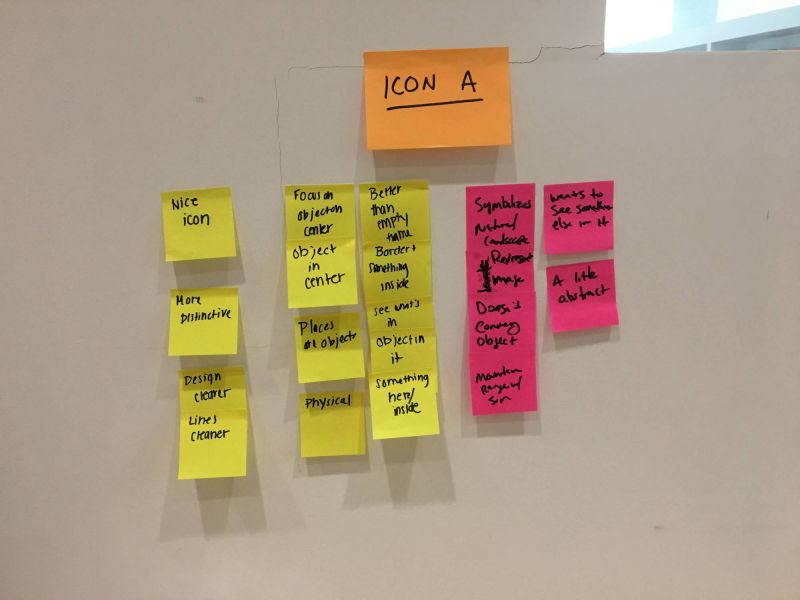 ICON A
Nice
icon
More
Distinctive
Design
cleaner
Lines
cleaner
Focus on
object on
center
object
in
center
Places
are objects
Physical
Better
than
empty
frame
Border +
something
inside
see what's
in
object in
it
something
here/
inside
Symbolizes
Natural
Landscape
Represent
Image
Doesn't
Convey
object
Mountain
Range w/
sun
wants to
see something
else in it
A little
abstract